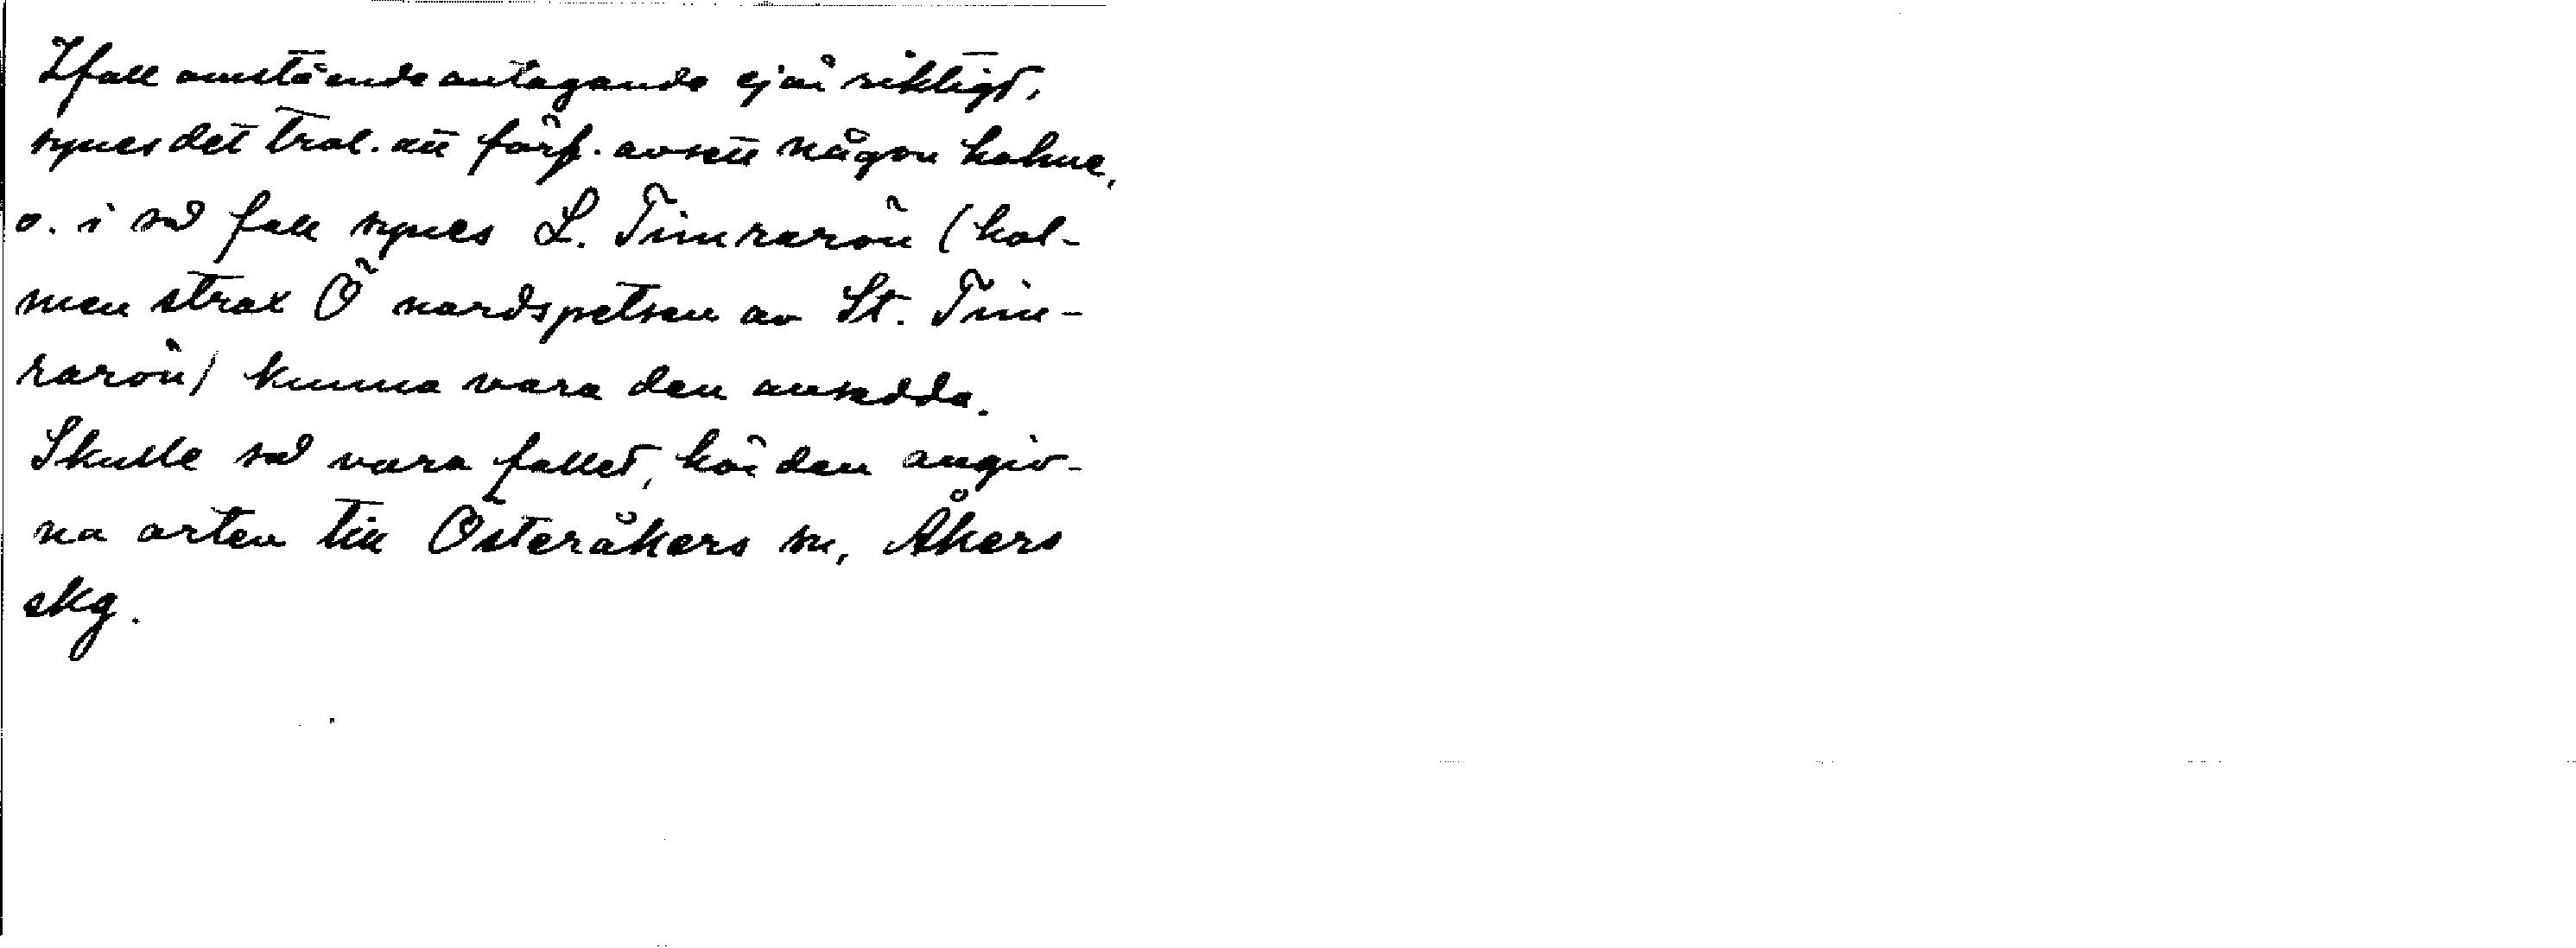 Ifall omstående antagande ej är riktigt,
synes det trol. att förf. avsett någon holme,
o. i så fall synes L. Timrarön (hol-
men strax Ö nordspetsen av St. Tim-
rarön) kunna vara den avsedda.
Skulle så vara fallet, hör den angiv-
na orten till Österåkers sn, Åkers
skg.